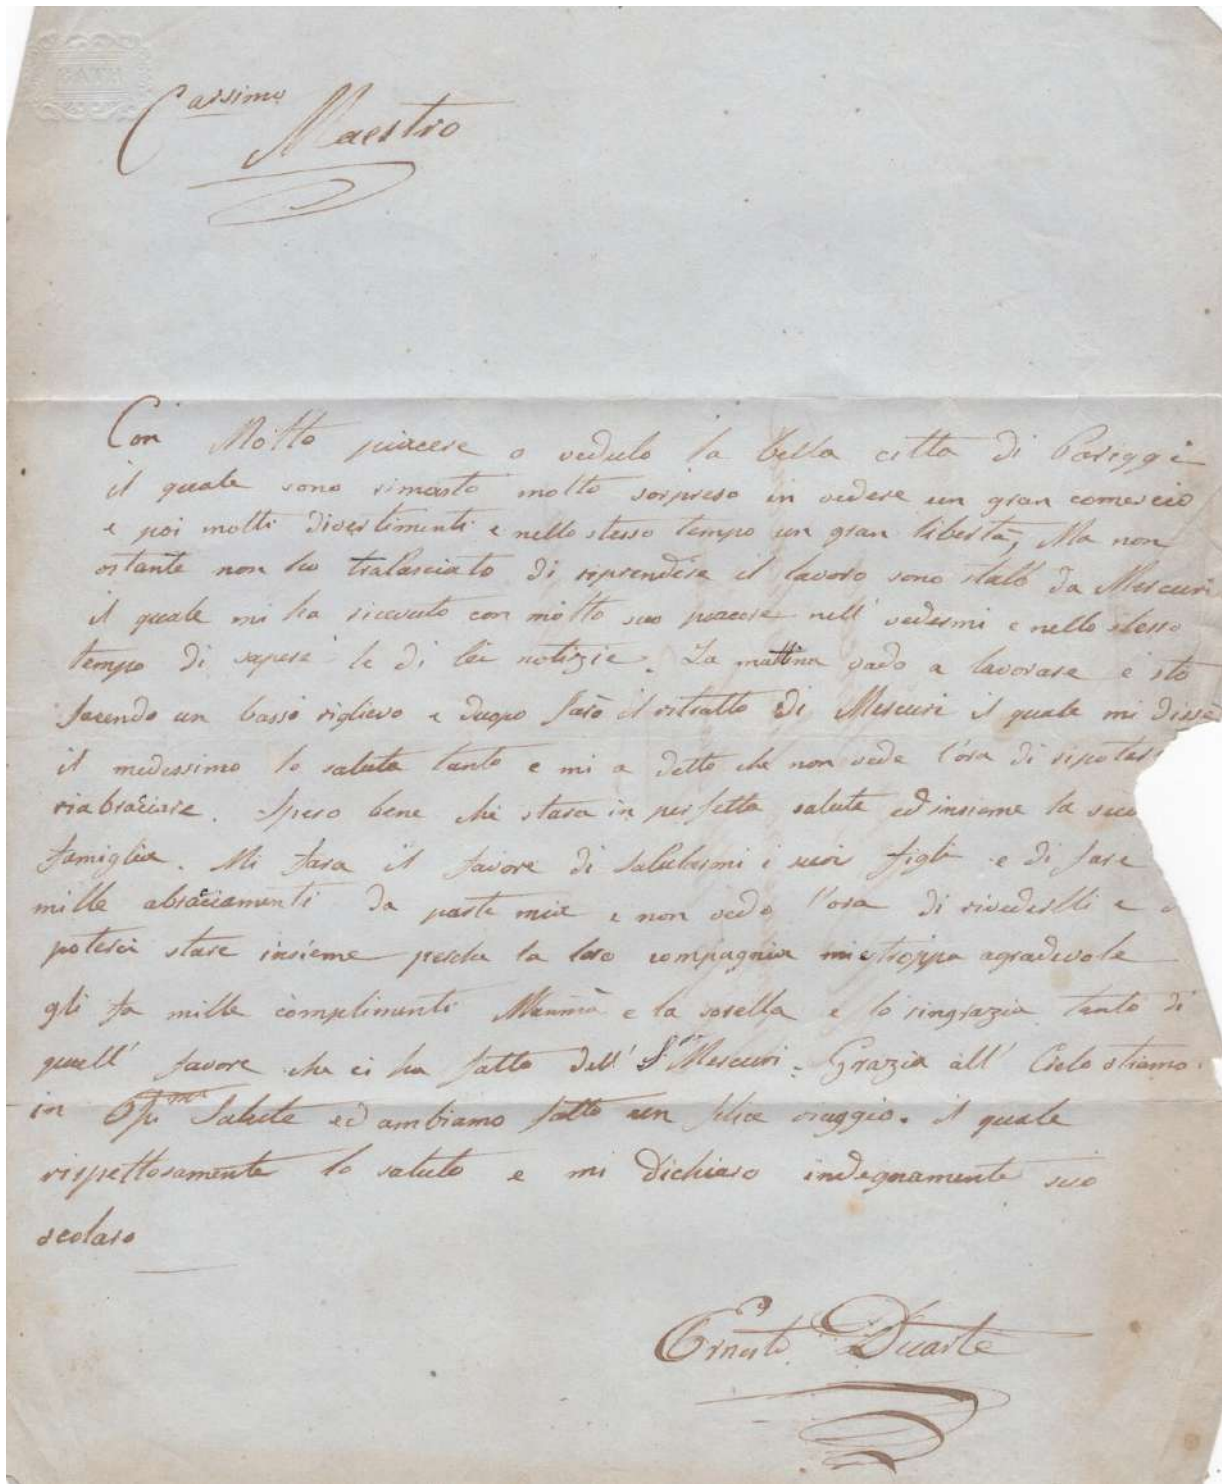 BATH
Carssimo
Maestro
Con Molto piacere o veduto la bella citta di Pareggi
il quale sono rimasto molto sorpreso in vedere un gran comercio
e poi molti divertimenti e nello stesso tempo un gran libertà, Ma non
ostante non ho tralasciato di riprendere il lavoro sono stato da Mercuri
il quale mi ha ricevuto con molto suo piacere nell' vedermi e nello stesso
tempo di sapere le di lei notizie. La mattina vado a lavorare e sto
facendo un basso riglievo e duopo farò il ritratto di Mercuri il quale mi disse
il medessimo lo saluta tanto e mi a detto che non vede l'ora di
riabraciare. Spero bene che stara in perfetta salute ed insieme la sua
famiglia. Mi fara il favore di salutarmi i suoi figli e di fare
mille abracciamenti da parte mia e non vedo l'ora di rivederlli e
poterci stare insieme perche la loro compagnia mi e troppa agradevole
gli fa mille complimenti Mammà e la sorella e lo ringrazia tanto di
quell' favore che ci ha fatto dell' S.r Mercuri. Grazia all' Cielo stiamo
in Salute ed ambiamo fatto un felice viaggio. il quale
rispettosamente lo saluto e mi dichiaro indegnamente suo
scolaro
Ernesto Duarte